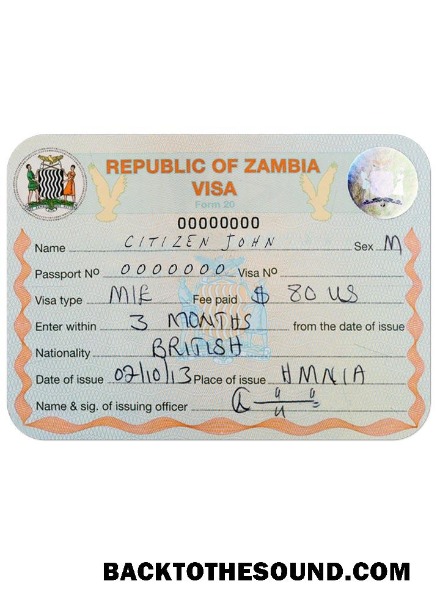 REPUBLIC OF ZAMBIA
VISA
Form 20
00000000
Name CITIZEN JOHN Sex M
Passport Nº 0000000 Visa Nº
Visa type M/E Fee paid $ 80 US
Enter within 3 MONTHS from the date of issue
Nationality BRITISH
Date of issue 02/10/13 Place of issue HMNIA
Name & sig. of issuing officer
BACKTOTHESOUND.COM